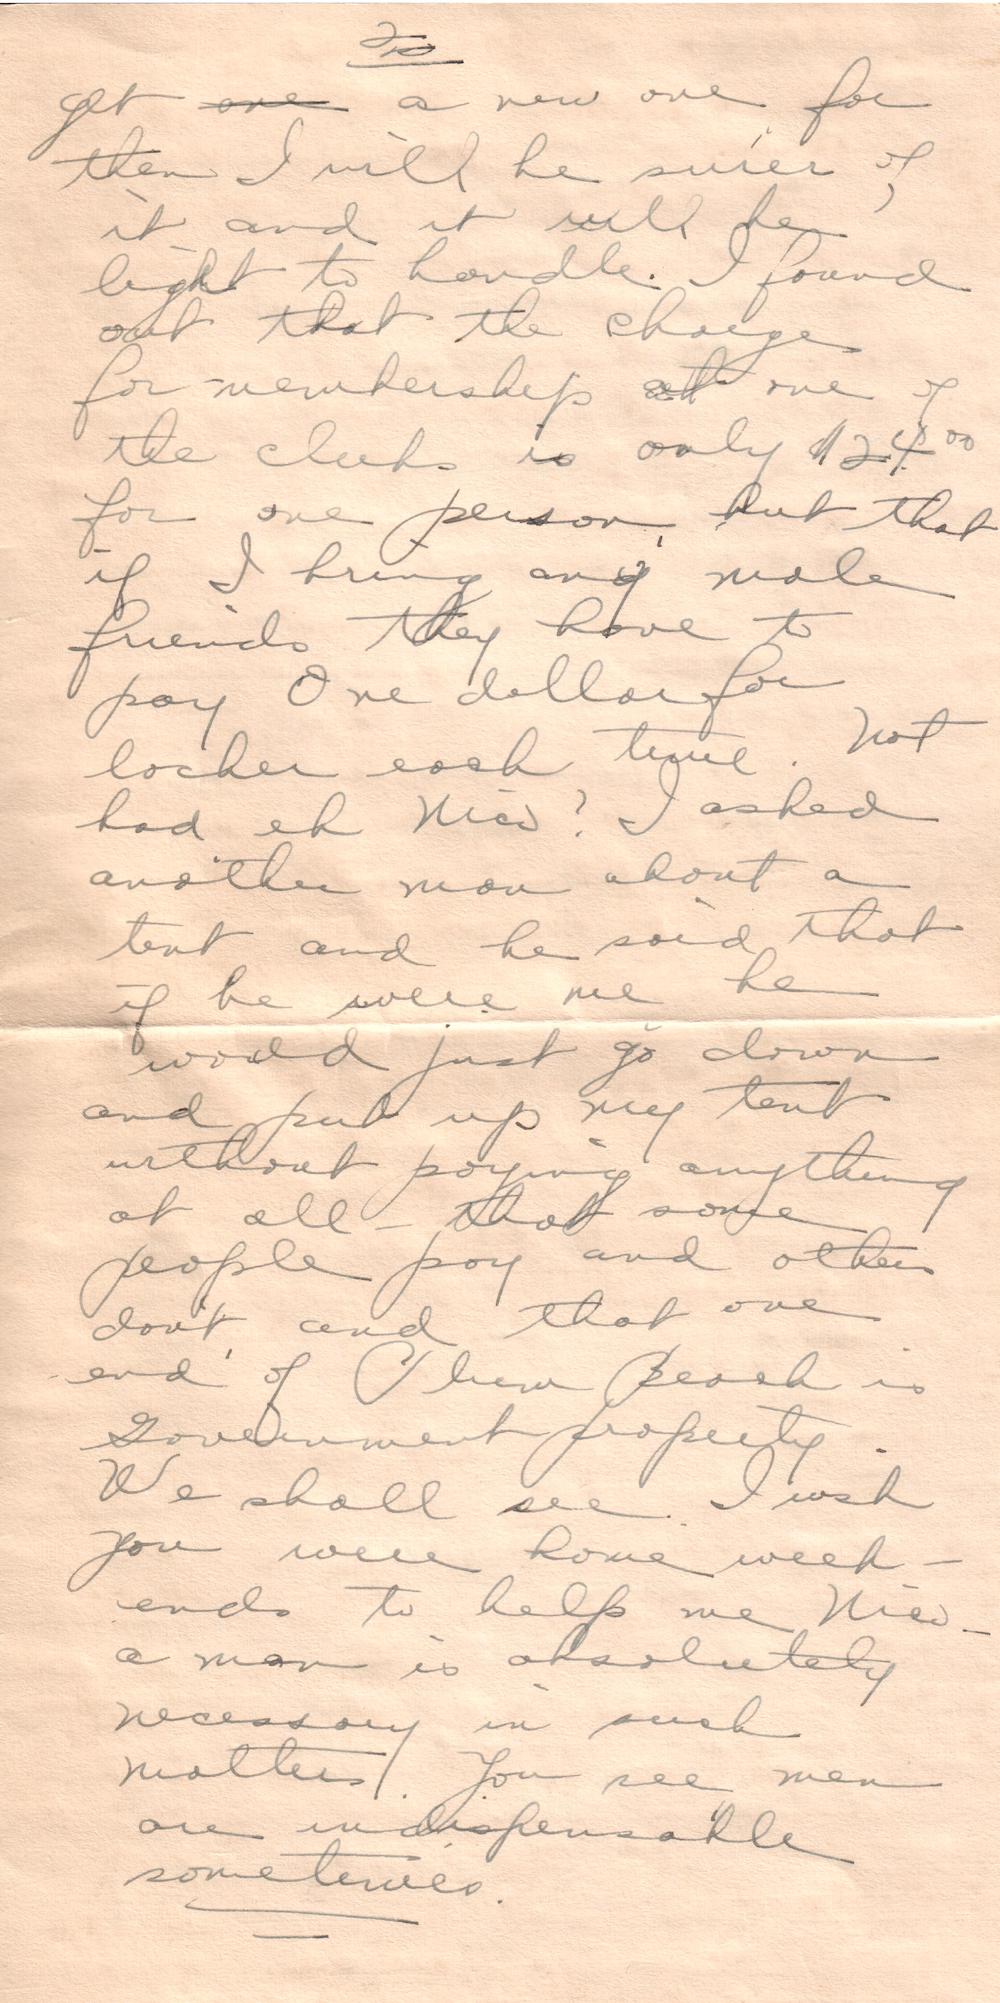 get one a new one for
then I will be surer of
it and it will be
light to handle. I found
out that the charge
for membership at one of
the clubs is only $24.00
for one person, but that
if I bring any male
friends they have to
pay One dollar for
locker each time. Not
bad eh Nico? I asked
another man about a
tent and he said that
if he were me he
would just go down
and put up my tent
without paying anything
at all – that some
people pay and others
don't and that one
end of Plum Beach is
Government property.
We shall see. I wish
you were home week-
ends to help me Nico –
a man is absolutely
necessary in such
matters. You see men
are indispensable
sometimes.